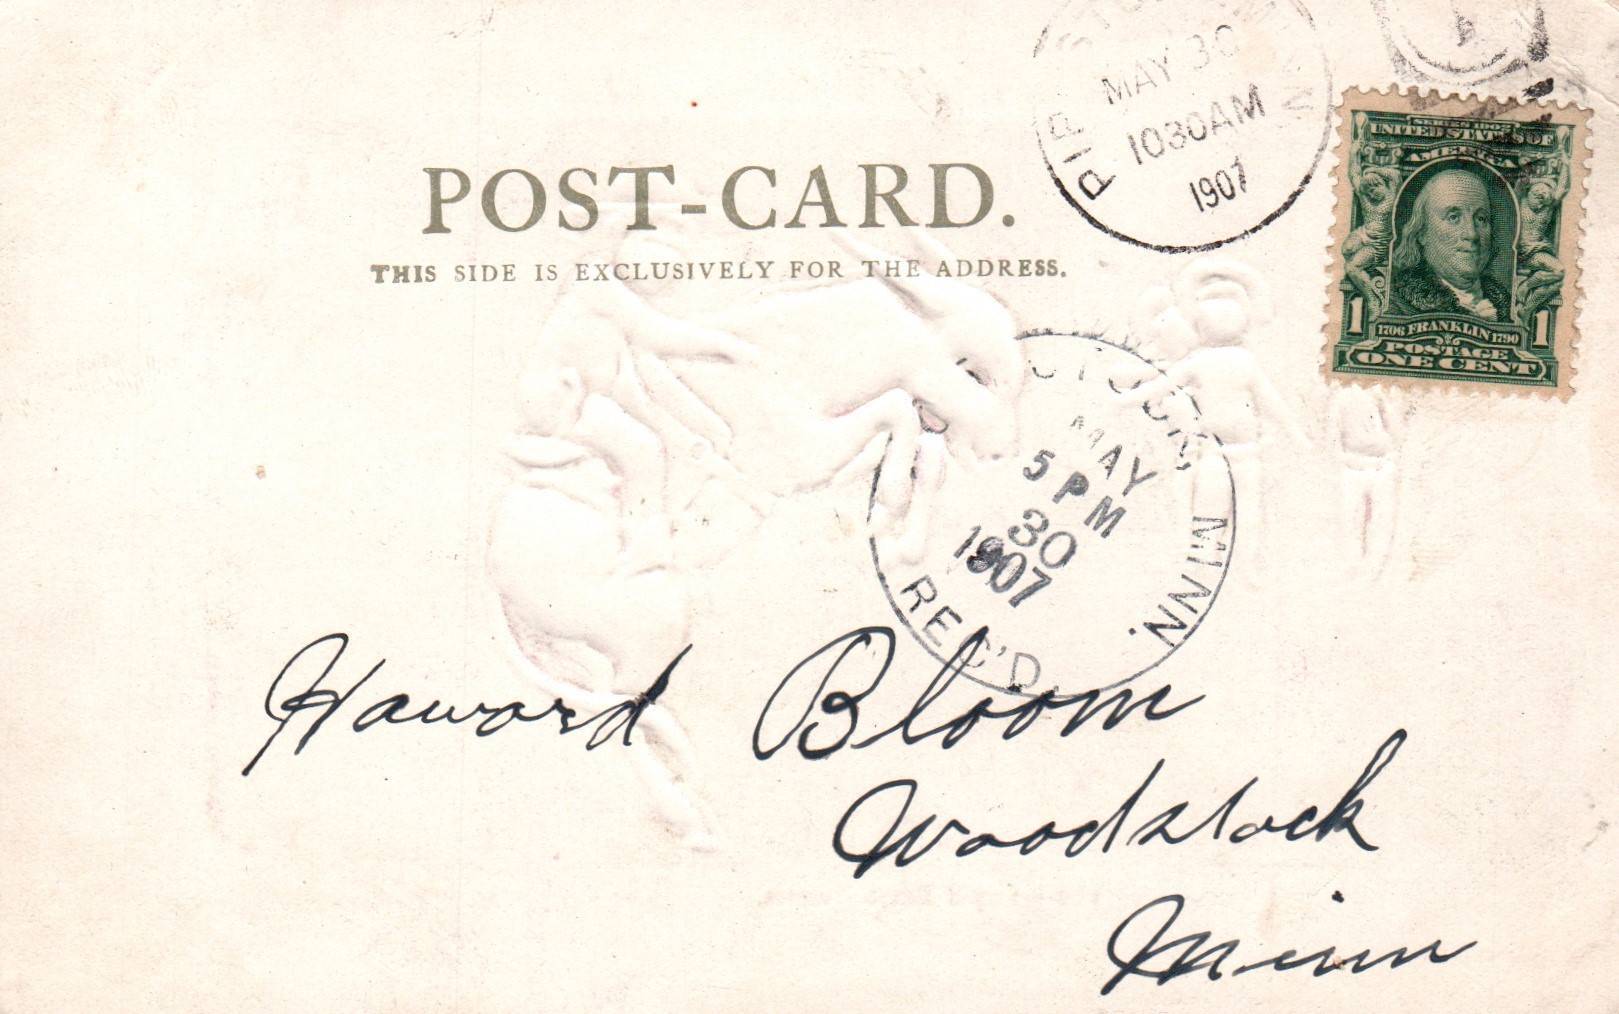 POST-CARD.
THIS SIDE IS EXCLUSIVELY FOR THE ADDRESS.
MAY 30
1030AM
1907
SERIES 1902
UNITED STATES OF
AMERICA
1 1706 FRANKLIN 1790 1
POSTAGE
ONE CENT
MINN.
MAY
5 PM
30
1907
REC'D
Haword Bloom
Woodstock
Minn